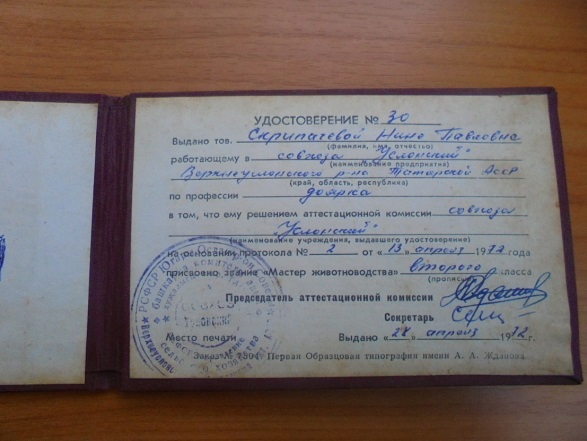 УДОСТОВЕРЕНИЕ № 30
Выдано тов. Скрипачевой Нине Павловне
(фамилия, имя, отчество)
работающему в совхоза "Услонский"
(наименование предприятия)
Верхнеуслонского р-на Татарской АССР
(край, область, республика)
по профессии доярка
в том, что ему решением аттестационной комиссии совхоза
"Услонский"
(наименование учреждения, выдавшего удостоверение)
на основании протокола № 2 от «13» апреля 1972 года
присвоено звание «Мастер животноводства» второго класса
(прописью)
Председатель аттестационной комиссии
Секретарь
Место печати Выдано «28» апреля 1972 г.
Заказ № 2504 Первая Образцовая типография имени А. А. Жданова
РСФСР